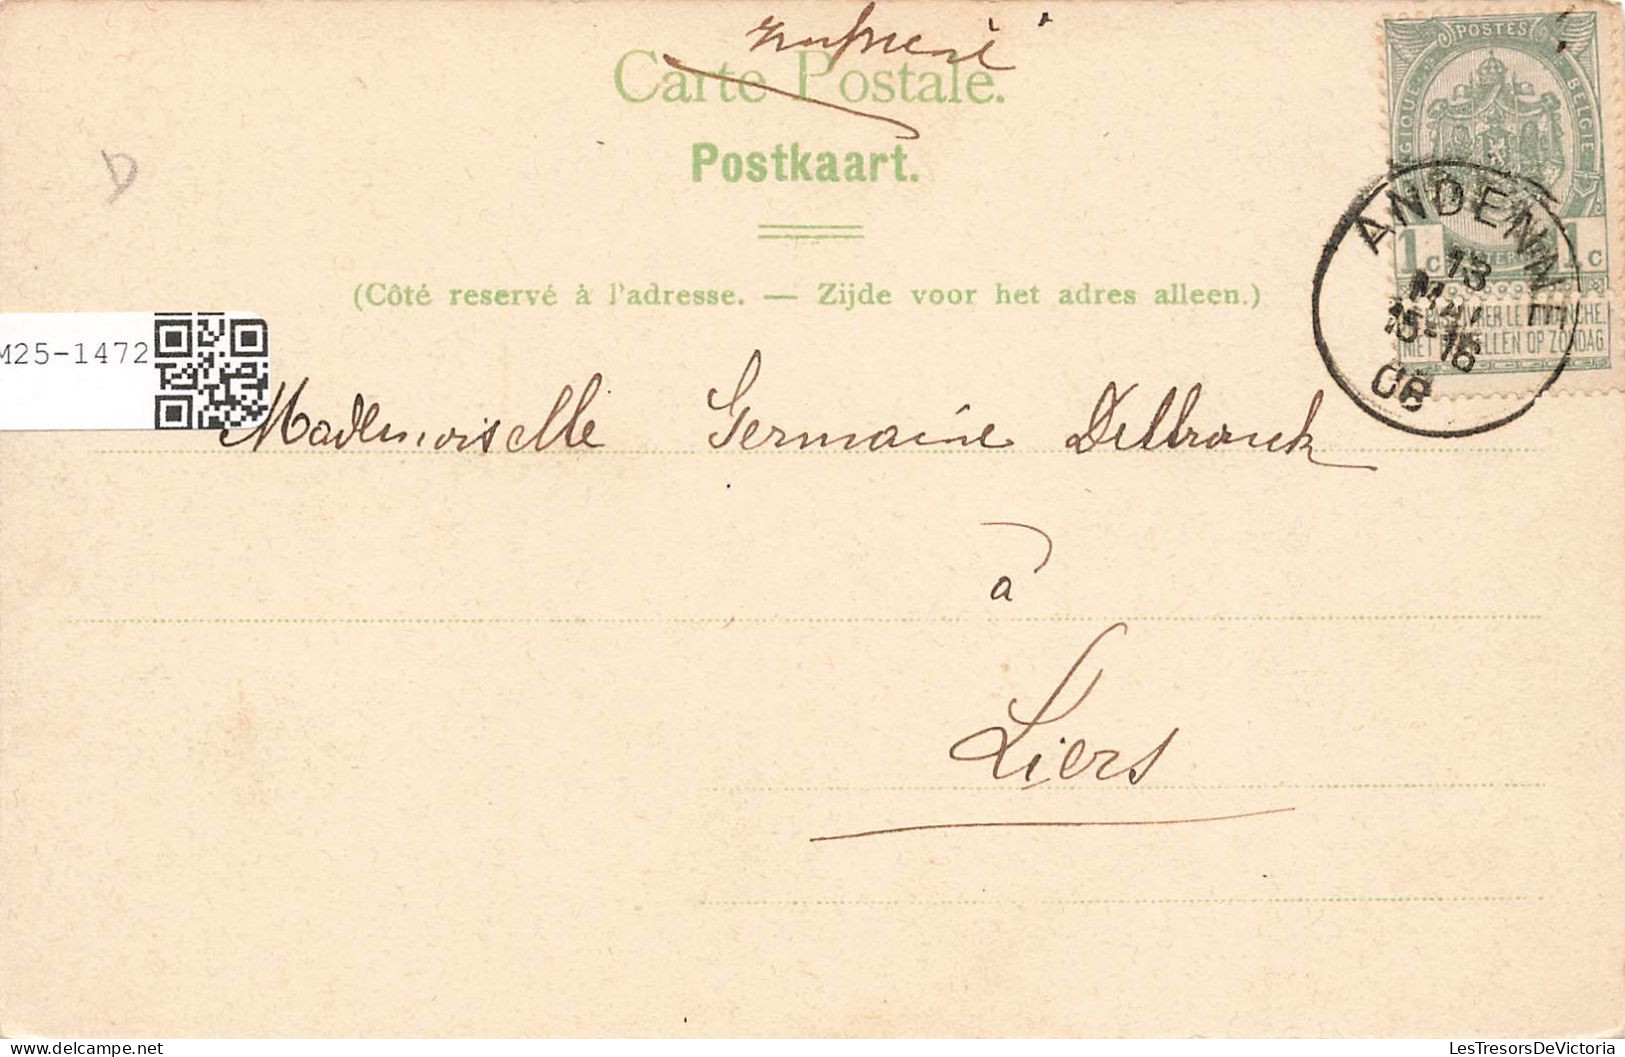 Imprimé
Carte Postale.
Postkaart.
D
(Côté reservé à l'adresse. — Zijde voor het adres alleen.)
M25-1472
Mademoiselle Germaine Delbrouck
à
Liers
POSTES
BELGIQUE BELGIE
1c 1c
NE PAS LIVRER LE DIMANCHE.
NIET BESTELLEN OP ZONDAG.
ANDENNE
13
MAI
15-16
08
LesTresorsDeVictoria
© delcampe.com